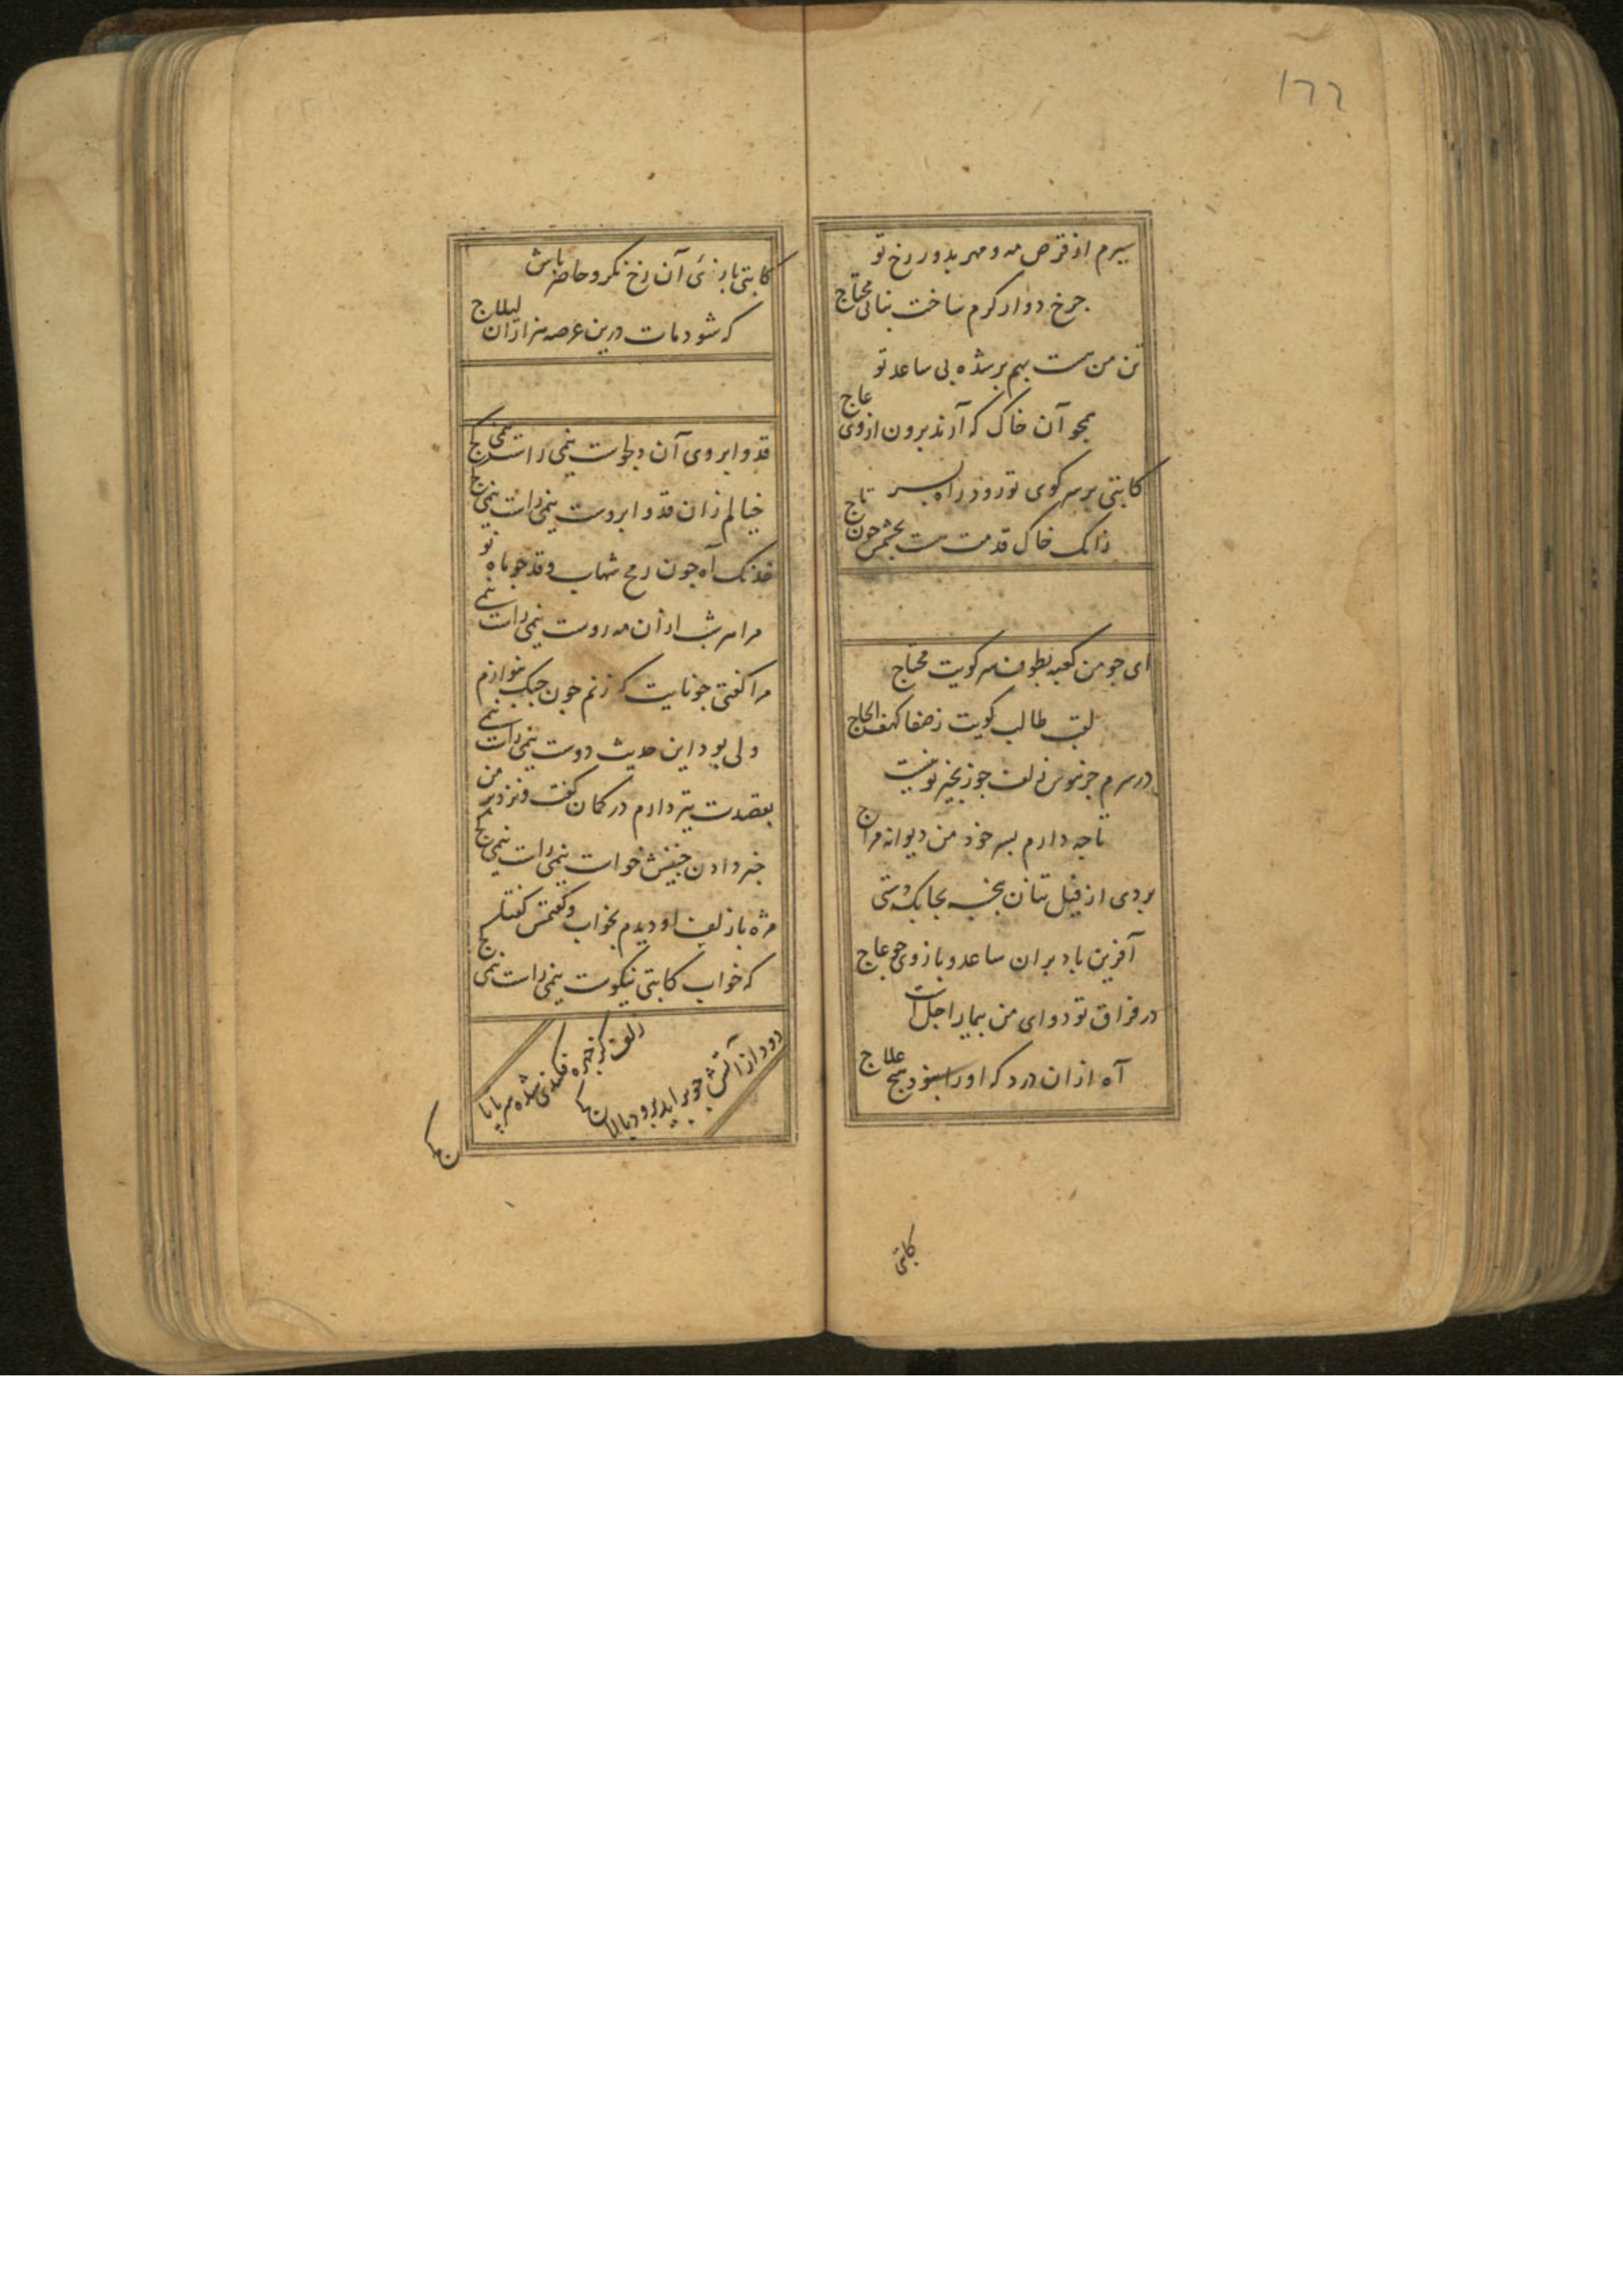 ١٦٦
سیرم از قرص مه و مهر بدور رخ تو
جرخ دوار کرم ساخت بنانی محتاج
تن من هست بهم بر شده بی ساعد تو
همجو آن خاک که آرند برون از وی عاج
کاتبی بر سر کوی تو رود در راه بسر
زانک خاک قدمت هست بجشمش جون تاج
ای جو من کعبه بطوف سر کویت محتاج
لقب طالب کویت ز صفا کهف الحاج
در سرم جز هوس زلف جو زنجیر تو نیست
تا جه دارم بسر خود من دیوانه مراج
بردی از فیل تنان بنجه بجابک دستی
آفرین باد بران ساعد و بازوی جو عاج
در فراق تو دوای من بیمار اجل است
آه ازان درد که او را نبود هیج علاج
کاتبی
کاتبی بازئ آن رخ نکر و حاضر باش
که شود مات درین عرصه هزاران لیلاج
قد و ابروی آن دلجوست نیمی راست نیمی کج
خیالم زان قد و ابروست نیمی راست نیمی کج
خدنک آه جون رمح شهاب و قد جو ماه نو
مرا هر شب ازان مه روست نیمی راست نیمی
مرا کفتی جو نایت که زنم جون جنک بنوازم
ولی بود این حدیث دوست نیمی راست نیمی
بقصدت تیر دارم در کمان کفت و نزد من
خبر دادن جنینش خوست نیمی راست نیمی کج
مژه با زلف او دیدم بخواب و کفتمش کفتا
که خواب کاتبی نیکوست نیمی راست نیمی کج
زلف بر جهره فکندی شده سر با با کج
دود از آتش جو بر اید برود بالا کج
کج